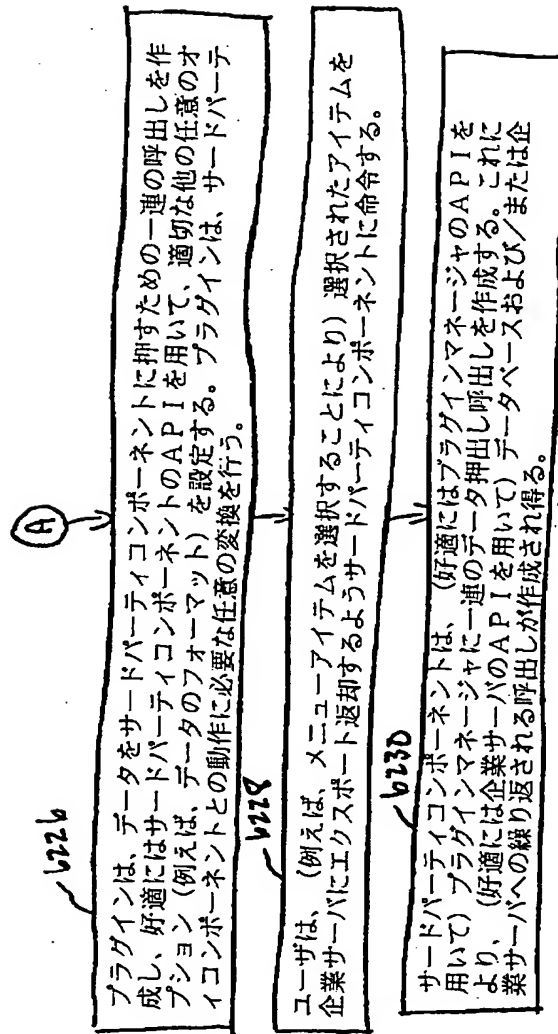 A
6226
プラグインは、データをサードパーティコンポーネントに押すための一連の呼出しを作
成し、好適にはサードパーティコンポーネントのAPIを用いて、適切な他の任意のオ
プション（例えば、データのフォーマット）を設定する。プラグインは、サードパーテ
ィコンポーネントとの動作に必要な任意の変換を行う。
6228
ユーザは、（例えば、メニューアイテムを選択することにより）選択されたアイテムを
企業サーバにエクスポート返却するようサードパーティコンポーネントに命令する。
6230
サードパーティコンポーネントは、（好適にはプラグインマネージャのAPIを
用いて）プラグインマネージャに一連のデータ押出し呼出しを作成する。これに
より、（好適には企業サーバのAPIを用いて）データベースおよび／または企
業サーバへの繰り返される呼出しが作成され得る。